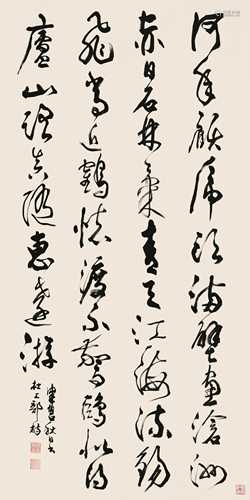 何年顧虎頭滿壁畫滄洲
赤日石林氣青天江海流錫
飛常近鶴杯渡不驚鷗似得
廬山路真隨惠遠游
秋日書
杜工部詩